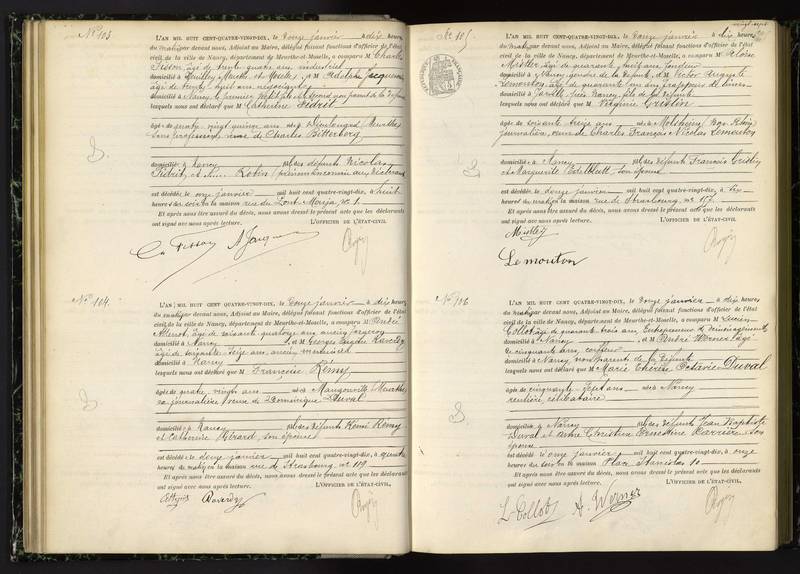 N° 103
L'AN MIL HUIT CENT QUATRE-VINGT-DIX, le douze janvier à dix heures
du matin par devant nous, Adjoint au Maire, délégué faisant fonctions d'officier de l'état
civil de la ville de Nancy, département de Meurthe-et-Moselle, a comparu M Charles
âgé de trente quatre ans industriel
domicilié à (Meurthe et Moselle), et M Adolphe Jacquemin
âgé de trente huit ans
domicilié à Nancy, le premier petit fils et le second non parent de la défunte
lesquels nous ont déclaré que Catherine Pidrit
âgée de quatre vingt quinze ans née à Meurthe
sans profession, veuve de Charles Bitterberg
domiciliée à Nancy fille des défunts Nicolas
Pidrit et Robin
est décédée le onze janvier mil huit cent quatre-vingt-dix, à huit
heures du soir en la maison rue du Pont Mouja n° 1
Et après nous être assuré du décès, nous avons dressé le présent acte que les déclarants
ont signé avec nous après lecture.
L'OFFICIER DE L'ÉTAT-CIVIL
N° 104.
L'AN MIL HUIT CENT QUATRE-VINGT-DIX, le douze janvier à dix heures
du matin par devant nous, Adjoint au Maire, délégué faisant fonctions d'officier de l'état
civil de la ville de Nancy, département de Meurthe-et-Moselle, a comparu M
âgé de soixante quatorze ans, ancien
domicilié à Nancy, et M Georges Eugène Raverdy
âgé de soixante seize ans, ancien menuisier
domicilié à Nancy
lesquels nous ont déclaré que Françoise Rémy
âgée de quatre vingts ans née à Mangonville (Meurthe)
journalière, veuve de Dominique Duval
domiciliée à Nancy fille des défunts René Rémy
et Catherine Gérard, son épouse
est décédée le douze janvier mil huit cent quatre-vingt-dix, à quatre
heures du matin en la maison rue de Strasbourg, n° 119
Et après nous être assuré du décès, nous avons dressé le présent acte que les déclarants
ont signé avec nous après lecture.
L'OFFICIER DE L'ÉTAT-CIVIL
Raverdy
N° 105.
L'AN MIL HUIT CENT QUATRE-VINGT-DIX, le douze janvier à dix heures
du matin par devant nous, Adjoint au Maire, délégué faisant fonctions d'officier de l'état
civil de la ville de Nancy, département de Meurthe-et-Moselle, a comparu M Aloïse
âgé de quarante huit ans,
domicilié à Nancy, gendre de la défunte, et M Victor Auguste
Lemonton, âgé de quarante un ans, frappeur de limes
domicilié à Jarville près Nancy, fils de la défunte
lesquels nous ont déclaré que Virginie
âgée de soixante treize ans née à Molsheim (Bas-Rhin)
journalière, veuve de Charles François Nicolas Lemonton
domiciliée à Nancy fille des défunts François
et Marguerite son épouse
est décédée le douze janvier mil huit cent quatre-vingt-dix, à six
heures du matin en la maison rue de Strasbourg, n° 157
Et après nous être assuré du décès, nous avons dressé le présent acte que les déclarants
ont signé avec nous après lecture.
L'OFFICIER DE L'ÉTAT-CIVIL
Lemonton
N° 106
L'AN MIL HUIT CENT QUATRE-VINGT-DIX, le douze janvier à dix heures
du matin par devant nous, Adjoint au Maire, délégué faisant fonctions d'officier de l'état
civil de la ville de Nancy, département de Meurthe-et-Moselle, a comparu M Lucien
Collot âgé de quarante trois ans, entrepreneur de déménagements
domicilié à Nancy, et M André Werner âgé
de cinquante ans, coiffeur
domicilié à Nancy, non parents de la défunte
lesquels nous ont déclaré que Marie Thérèse Octavie Duval
âgée de cinquante sept ans née à Nancy
rentière, célibataire
domiciliée à Nancy fille des défunts Jean Baptiste
Duval et Anne Christine Ernestine Carrière, son
épouse
est décédée le onze janvier mil huit cent quatre-vingt-dix, à onze
heures du soir en la maison Place Stanislas 10
Et après nous être assuré du décès, nous avons dressé le présent acte que les déclarants
ont signé avec nous après lecture.
L'OFFICIER DE L'ÉTAT-CIVIL
L. Collot A. Werner